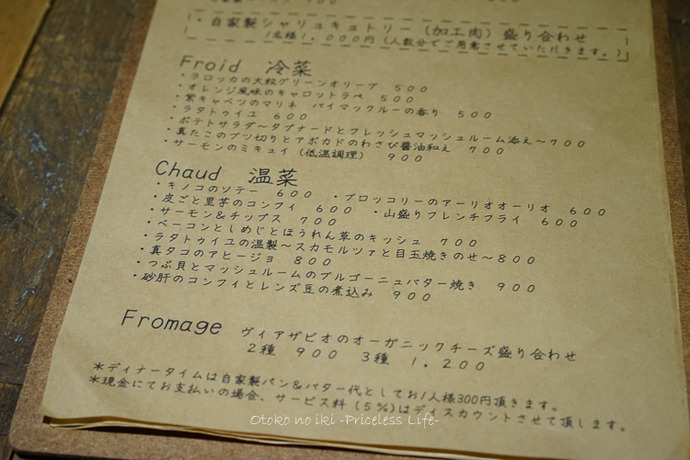 ・自家製シャリュキュトリー（加工肉）盛り合わせ
1名様１，０００円（人数分でご用意させていただきます。）
Froid 冷菜
・ラロッカの大粒グリーンオリーブ ５００
・オレンジ風味のキャロットラペ ５００
・紫キャベツのマリネ パイマックルーの香り ５００
・ラタトゥイユ ６００
・ポテトサラダ～タプナードとフレッシュマッシュルーム添え～７００
・真たこのブツ切りとアボカドのわさび醤油和え ７００
・サーモンのミキュイ（低温調理） ９００
Chaud 温菜
・キノコのソテー ６００ ・ブロッコリーのアーリオオーリオ ６００
・皮ごと里芋のコンフィ ６００ ・山盛りフレンチフライ ６００
・サーモン&チップス ７００
・ベーコンとしめじとほうれん草のキッシュ ７００
・ラタトゥイユの温製～スカモルツァと目玉焼きのせ～８００
・真タコのアヒージョ ８００
・つぶ貝とマッシュルームのブルゴーニュバター焼き ９００
・砂肝のコンフィとレンズ豆の煮込み ９００
Fromage ヴィアザビオのオーガニックチーズ盛り合わせ
２種 ９００ ３種 １，２００
＊ディナータイムは自家製パン&バター代としてお1人様300円頂きます。
＊現金にてお支払いの場合、サービス料（５%）はディスカウントさせて頂します。
Otoko no iki -Priceless Life-